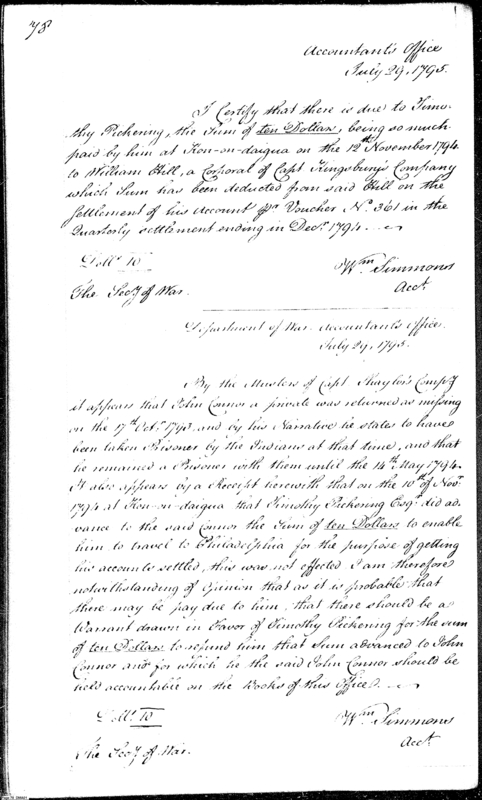 78
Accountant's Office
July 29, 1795.
I Certify that there is due to Timo-
thy Pickering, the Sum of ten Dollars, being so much
paid by him at Kon-on-daigua on the 12th November 1794
to William Hill, a Corporal of Capt Kingsbury's Company
which Sum has been deducted from said Hill on the
Settlement of his Account pr Voucher No 361 in the
Quarterly settlement ending in Decr 1794.
Dolls 10
Wm Simmons
Acct
The Secy of War.
Department of War Accountant's Office
July 29, 1795.
By the Musters of Capt Compy
it appears that John Connor a private was returned as missing
on the 17th Octr 1793 and by his Narrative he states to have
been taken Prisoner by the Indians at that time, and that
he remained a Prisoner with them until the 14th May 1794.
It also appears by a Receipt herewith that on the 10th of Novr
1794 at Kon-on-daigua that Timothy Pickering Esqr did ad-
vance to the said Connor the Sum of ten Dollars to enable
him to travel to Philadelphia for the purpose of getting
his accounts settled, this was not effected I am therefore
notwithstanding of Opinion that as it is probable that
there may be pay due to him, that there should be a
Warrant drawn in Favor of Timothy Pickering for the sum
of ten Dollars to refund him that Sum advanced to John
Connor and for which he the said John Connor should be
held accountable on the Books of this Office.
Dolls 10
Wm Simmons
Acct
The Secy of War.